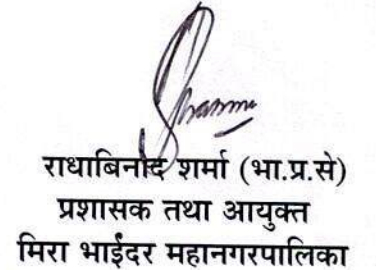 राधाबिनोद शर्मा (भा.प्र.से)
प्रशासक तथा आयुक्त
मिरा भाईंदर महानगरपालिका